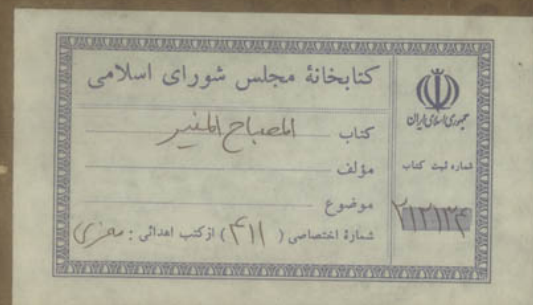 کتابخانهٔ مجلس شورای اسلامی
کتاب المصباح المنیر
مؤلف
موضوع
شمارهٔ اختصاصی ( ۴۱۱ ) از کتب اهدائی :
جمهوری اسلامی ایران
شماره ثبت کتاب